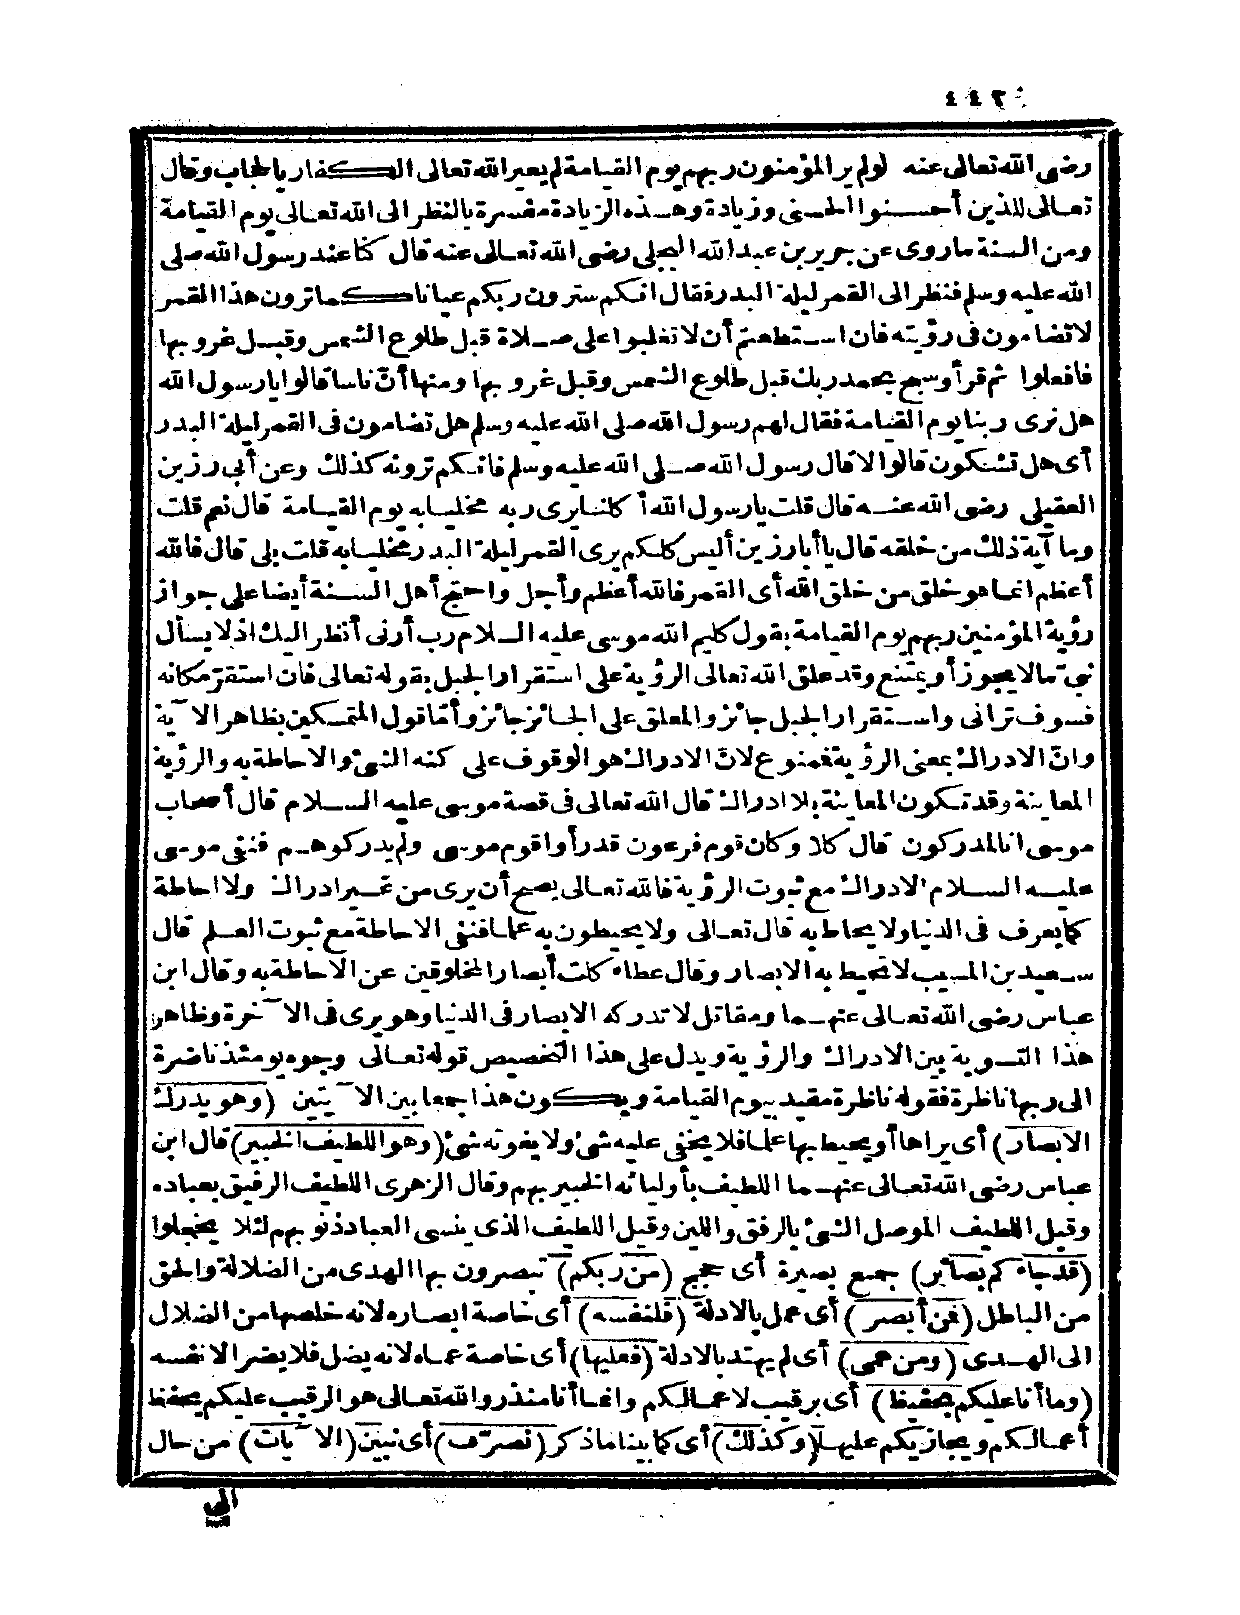 ٤٤٢
رضى الله تعالى عنه لولم ير المؤمنون ربهم يوم القيامة لم يعير الله تعالى الكفار بالحجاب وقال
تعالى للذين أحسنوا الحسنى وزيادة وهذه الزيادة مفسرة بالنظر الى الله تعالى يوم القيامة
ومن السنة ماروى عن جرير بن عبدالله البجلى رضى الله تعالى عنه قال كنا عند رسول الله صلى
الله عليه وسلم فنظر الى القمر ليلة البدر فقال انكم سترون ربكم عيانا كما ترون هذا القمر
لاتضامون فى رؤيته فان استطعتم أن لا تغلبوا على صلاة قبل طلوع الشمس وقبل غروبها
فافعلوا ثم قرأ وسبح بحمد ربك قبل طلوع الشمس وقبل غروبها ومنها أنّ ناسا قالوا يا رسول الله
هل نرى ربنا يوم القيامة فقال لهم رسول الله صلى الله عليه وسلم هل تضامون فى القمر ليلة البدر
أى هل تشكون قالوا لا قال رسول الله صلى الله عليه وسلم فانكم ترونه كذلك وعن أبى رزين
العقيلى رضى الله عنه قال قلت يا رسول الله أكلنا يرى ربه مخليا به يوم القيامة قال نعم قلت
وما آية ذلك من خلقه قال يا أبا رزين أليس كلكم يرى القمر ليلة البدر مخليا به قلت بلى قال فالله
أعظم انما هو خلق من خلق الله أى القمر فالله أعظم وأجل واحتج أهل السنة أيضا على جواز
رؤية المؤمنين ربهم يوم القيامة بقول كليم الله موسى عليه السلام رب أرنى أنظر اليك اذ لا يسأل
نبىّ مالا يجوز أو يمتنع وقد علق الله تعالى الرؤية على استقرار الجبل بقوله تعالى فان استقرّ مكانه
فسوف ترانى واستقرار الجبل جائز والمعلق على الجائز جائز وأمّا قول المتمسكين بظاهر الآية
وانّ الادراك بمعنى الرؤية فممنوع لانّ الادراك هو الوقوف على كنه الشئ والاحاطة به والرؤية
المعاينة وقد تكون المعاينة بلا ادراك قال الله تعالى فى قصة موسى عليه السلام قال أصحاب
موسى انا لمدركون قال كلا وكان قوم فرعون قد رأوا قوم موسى ولم يدركوهم فنفى موسى
عليه السلام الادراك مع ثبوت الرؤية فالله تعالى يصح أن يرى من غير ادراك ولا احاطة
كما يعرف فى الدنيا ولا يحاط به قال تعالى ولا يحيطون به علما فنفى الاحاطة مع ثبوت العلم قال
سعيد بن المسيب لا تحيط به الابصار وقال عطاء كلت أبصار المخلوقين عن الاحاطة به وقال ابن
عباس رضى الله تعالى عنهما ومقاتل لا تدركه الابصار فى الدنيا وهو يرى فى الآخرة وظاهر
هذا التسوية بين الادراك والرؤية ويدل على هذا التخصيص قوله تعالى وجوه يومئذ ناضرة
الى ربها ناظرة فقوله ناظرة مقيد بيوم القيامة ويكون هذا جمعا بين الآيتين (وهو يدرك
الابصار) أى يراها أو يحيط بها علما فلا يخفى عليه شئ ولا يفوته شئ (وهو اللطيف الخبير) قال ابن
عباس رضى الله تعالى عنهما اللطيف بأوليائه الخبير بهم وقال الزهرى اللطيف الرفيق بعباده
وقيل اللطيف الموصل الشئ بالرفق واللين وقيل اللطيف الذى ينسى العباد ذنوبهم لئلا يخجلوا
(قد جاءكم بصائر) جمع بصيرة أى حجج (من ربكم) تبصرون بها الهدى من الضلالة والحق
من الباطل (فمن أبصر) أى عمل بالادلة (فلنفسه) أى خاصة ابصاره لانه خلصها من الضلال
الى الهدى (ومن عمى) أى لم يهتد بالادلة (فعليها) أى خاصة عماه لانه يضل فلا يضر الا نفسه
(وما أنا عليكم بحفيظ) أى برقيب لاعمالكم وانما أنا منذر والله تعالى هو الرقيب عليكم يحفظ
أعمالكم ويجازيكم عليها (وكذلك) أى كما بينا ماذكر (نصرّف) أى نبين (الآيات) من حال
الى